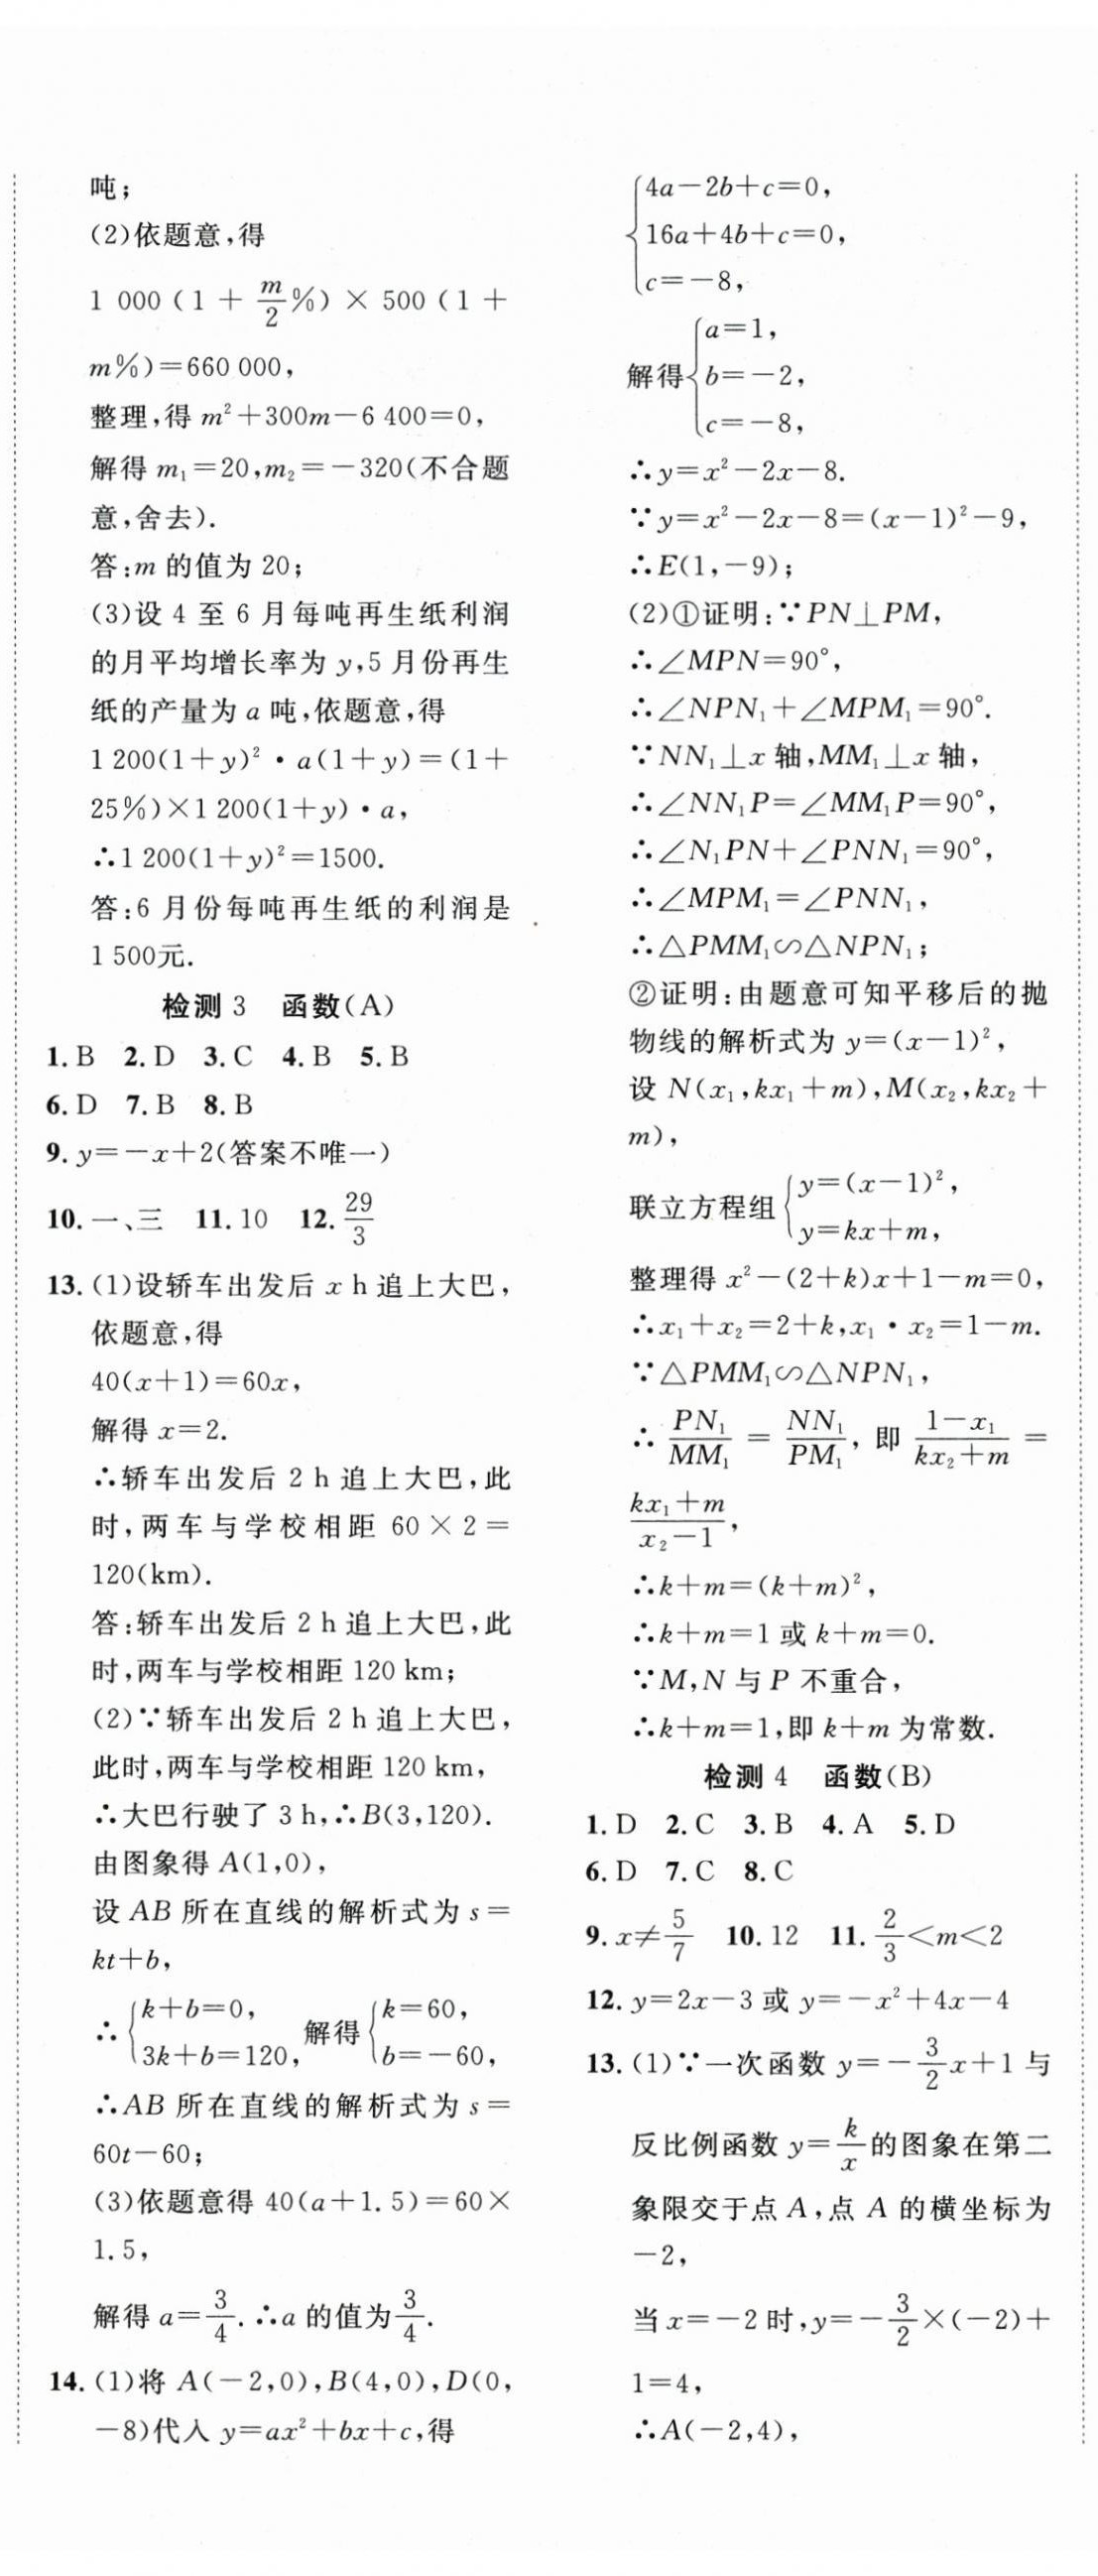 吨;
(2)依题意,得
1 000(1 + m/2 %) × 500(1 +
m%)=660 000,
整理,得 m²+300m-6 400=0,
解得 m₁=20,m₂=-320(不合题
意,舍去).
答:m 的值为 20;
(3)设 4 至 6 月每吨再生纸利润
的月平均增长率为 y,5 月份再生
纸的产量为 a 吨,依题意,得
1 200(1+y)²·a(1+y)=(1+
25%)×1 200(1+y)·a,
∴1 200(1+y)²=1500.
答:6 月份每吨再生纸的利润是
1 500元.
检测 3 函数(A)
1. B 2. D 3. C 4. B 5. B
6. D 7. B 8. B
9. y=-x+2(答案不唯一)
10. 一、三 11. 10 12. 29/3
13. (1)设轿车出发后 x h 追上大巴,
依题意,得
40(x+1)=60x,
解得 x=2.
∴轿车出发后 2 h 追上大巴,此
时,两车与学校相距 60×2=
120(km).
答:轿车出发后 2 h 追上大巴,此
时,两车与学校相距 120 km;
(2)∵轿车出发后 2 h 追上大巴,
此时,两车与学校相距 120 km,
∴大巴行驶了 3 h,∴B(3,120).
由图象得 A(1,0),
设 AB 所在直线的解析式为 s=
kt+b,
∴{k+b=0, 3k+b=120, 解得{k=60, b=-60,
∴AB 所在直线的解析式为 s=
60t-60;
(3)依题意得 40(a+1.5)=60×
1.5,
解得 a=3/4. ∴a 的值为 3/4.
14. (1)将 A(-2,0),B(4,0),D(0,
-8)代入 y=ax²+bx+c,得
{4a-2b+c=0,
16a+4b+c=0,
c=-8,
解得{a=1,
b=-2,
c=-8,
∴y=x²-2x-8.
∵y=x²-2x-8=(x-1)²-9,
∴E(1,-9);
(2)①证明:∵PN⊥PM,
∴∠MPN=90°,
∴∠NPN₁+∠MPM₁=90°.
∵NN₁⊥x 轴,MM₁⊥x 轴,
∴∠NN₁P=∠MM₁P=90°,
∴∠N₁PN+∠PNN₁=90°,
∴∠MPM₁=∠PNN₁,
∴△PMM₁∽△NPN₁;
②证明:由题意可知平移后的抛
物线的解析式为 y=(x-1)²,
设 N(x₁,kx₁+m),M(x₂,kx₂+
m),
联立方程组{y=(x-1)², y=kx+m,
整理得 x²-(2+k)x+1-m=0,
∴x₁+x₂=2+k,x₁·x₂=1-m.
∵△PMM₁∽△NPN₁,
∴ PN₁/MM₁ = NN₁/PM₁, 即 (1-x₁)/(kx₂+m) =
(kx₁+m)/(x₂-1),
∴k+m=(k+m)²,
∴k+m=1 或 k+m=0.
∵M,N 与 P 不重合,
∴k+m=1,即 k+m 为常数.
检测 4 函数(B)
1. D 2. C 3. B 4. A 5. D
6. D 7. C 8. C
9. x≠5/7 10. 12 11. 2/3<m<2
12. y=2x-3 或 y=-x²+4x-4
13. (1)∵一次函数 y=-3/2 x+1 与
反比例函数 y=k/x 的图象在第二
象限交于点 A,点 A 的横坐标为
-2,
当 x=-2 时,y=-3/2×(-2)+
1=4,
∴A(-2,4),